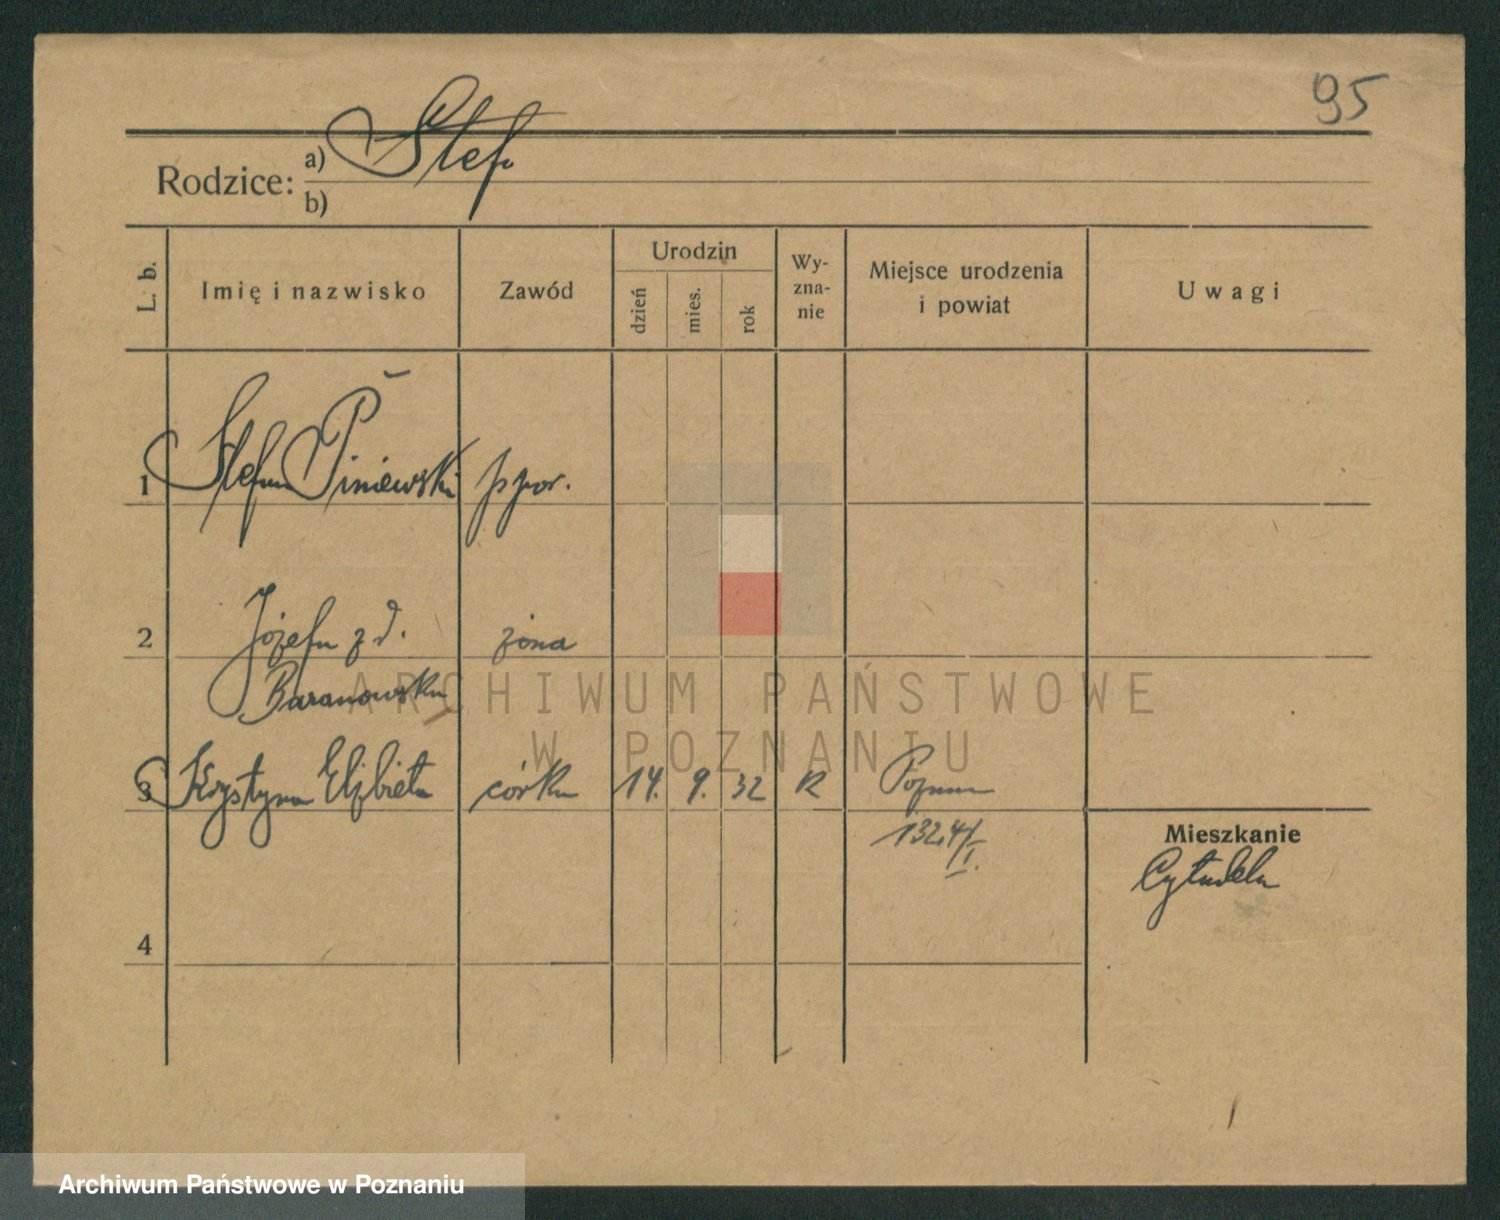 95
Rodzice: a) Stef
b)
L. b. Imię i nazwisko Zawód Urodzin dzień mies. rok Wy-zna-nie Miejsce urodzenia i powiat Uwagi
1 Stefan Piniewski ppor.
2 Józefa z d. żona
Baranowska
3 Krystyna Elżbieta córka 14. 9. 32 R Poznan
1324/I.
Mieszkanie
Cytadela
4
ARCHIWUM PAŃSTWOWE
W POZNANIU
Archiwum Państwowe w Poznaniu